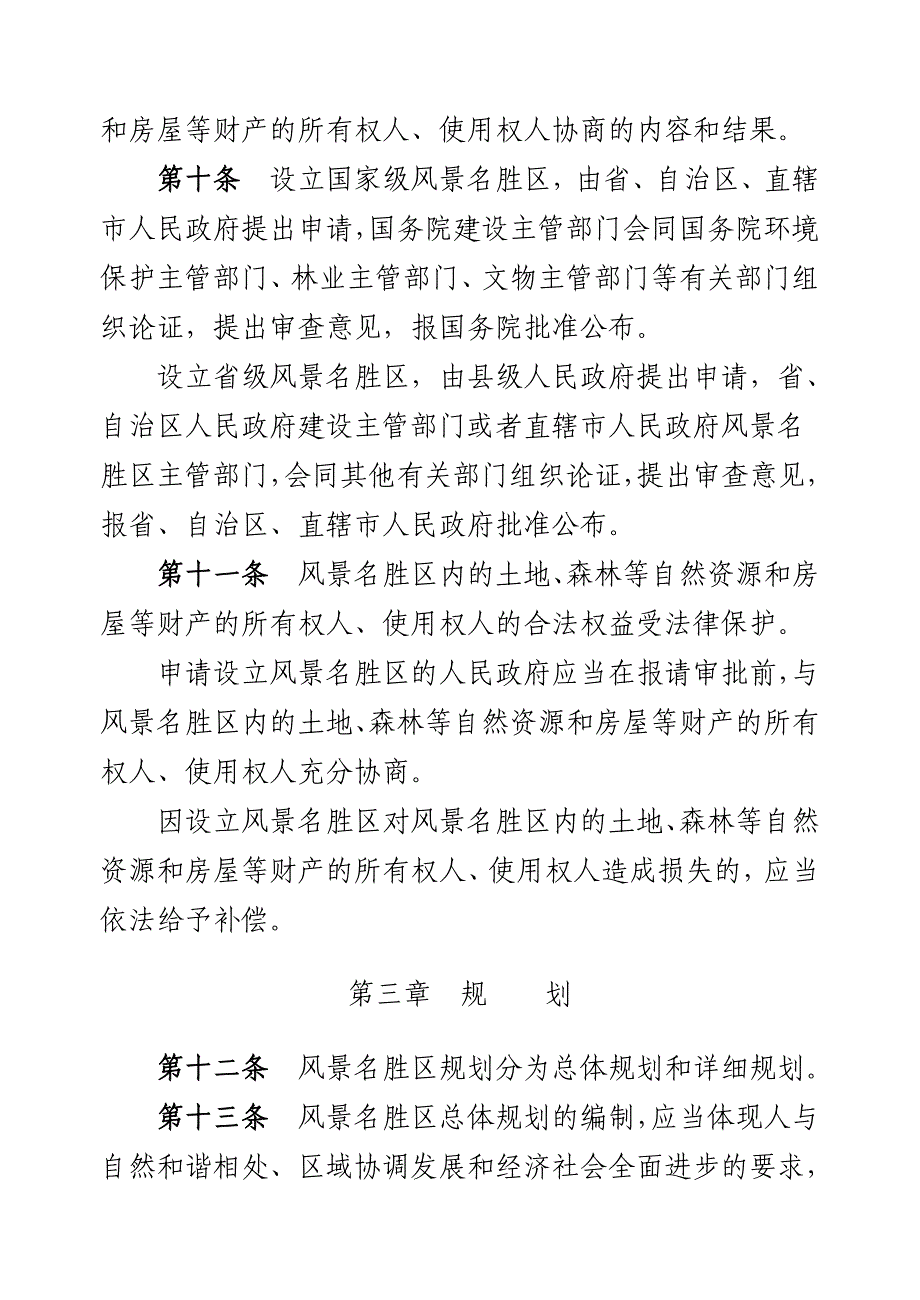 和房屋等财产的所有权人、使用权人协商的内容和结果。
第十条　设立国家级风景名胜区，由省、自治区、直辖
市人民政府提出申请，国务院建设主管部门会同国务院环境
保护主管部门、林业主管部门、文物主管部门等有关部门组
织论证，提出审查意见，报国务院批准公布。
设立省级风景名胜区，由县级人民政府提出申请，省、
自治区人民政府建设主管部门或者直辖市人民政府风景名
胜区主管部门，会同其他有关部门组织论证，提出审查意见，
报省、自治区、直辖市人民政府批准公布。
第十一条　风景名胜区内的土地、森林等自然资源和房
屋等财产的所有权人、使用权人的合法权益受法律保护。
申请设立风景名胜区的人民政府应当在报请审批前，与
风景名胜区内的土地、森林等自然资源和房屋等财产的所有
权人、使用权人充分协商。
因设立风景名胜区对风景名胜区内的土地、森林等自然
资源和房屋等财产的所有权人、使用权人造成损失的，应当
依法给予补偿。
第三章　规　　划
第十二条　风景名胜区规划分为总体规划和详细规划。
第十三条　风景名胜区总体规划的编制，应当体现人与
自然和谐相处、区域协调发展和经济社会全面进步的要求，